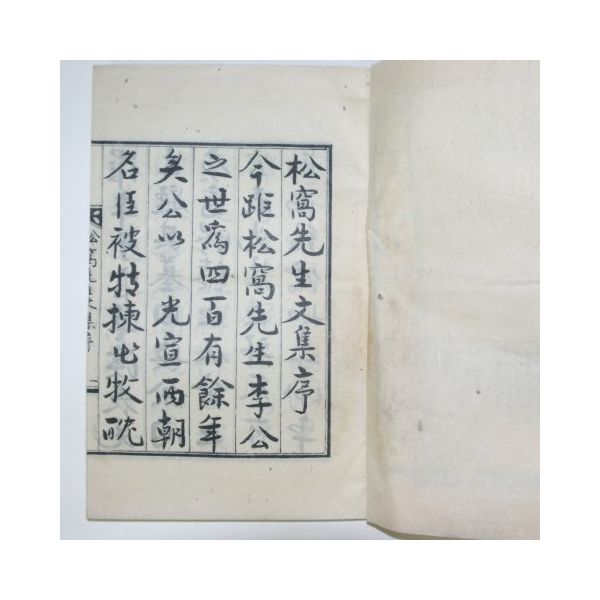 松窩先生文集序
今距松窩先生李公
之世爲四百有餘年
矣公以光宣兩朝
名臣被特揀出牧
松窩先生文集序